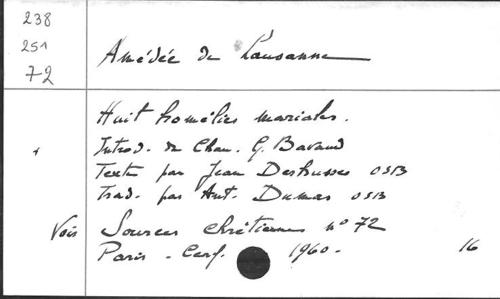 238
251
72
Amédée de Lausanne
Huit homélies mariales.
Introd. de Chan. G. Bavaud
Texte par Jean Deshusses OSB
Trad. par Ant. Dumas OSB
Vois Sources chrétiennes n° 72
Paris - Cerf. 1960. 16